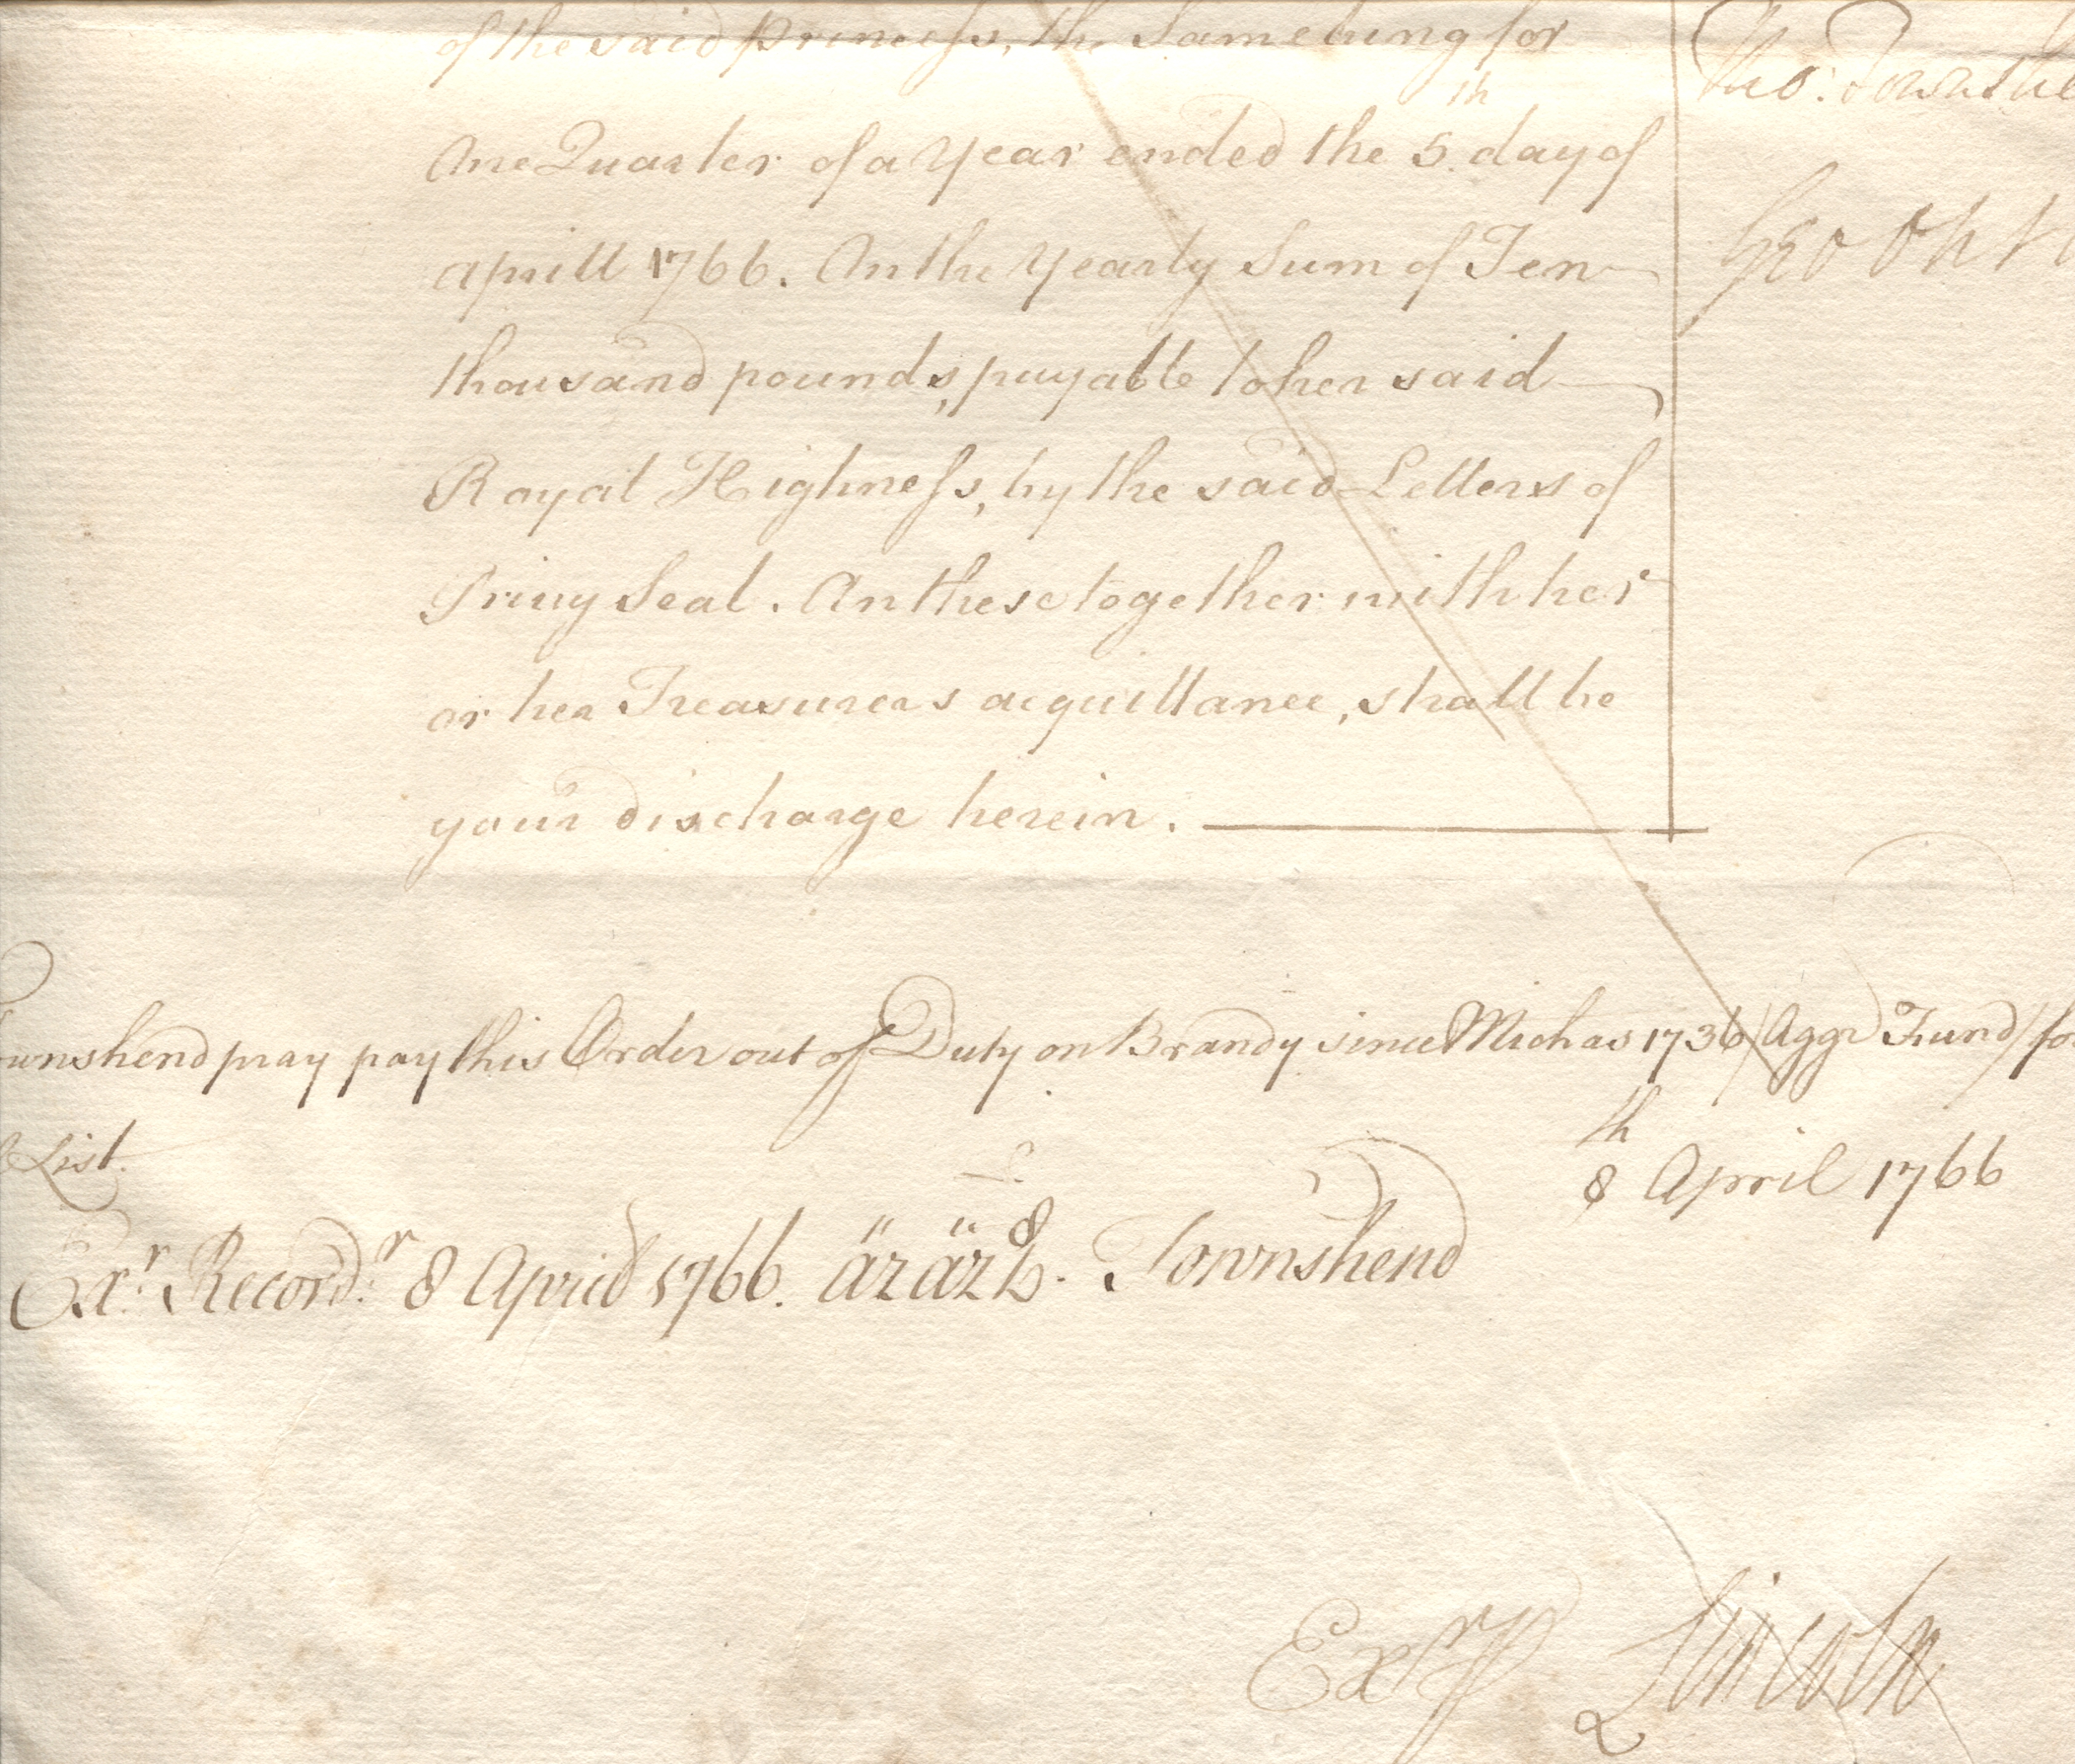 of the said Princess, the Same being for
One Quarter of a Year ended the 5th day of
aprill 1766. On the Yearly Sum of Ten
thousand pounds, payable to her said
Royal Highness, by the said Letters of
Privy Seal. On these together with her
or her Treasurers acquittance, shall be
your discharge herein.
Tho: Townshe
Geo Onsl
ownshend pray pay this Order out of Duty on Brandy since Michas 1736 (Aggr Fund) fo
List.
8th April 1766
Exr. Recordr. 8 April 1766.
Townshend
Exr P Lincoln